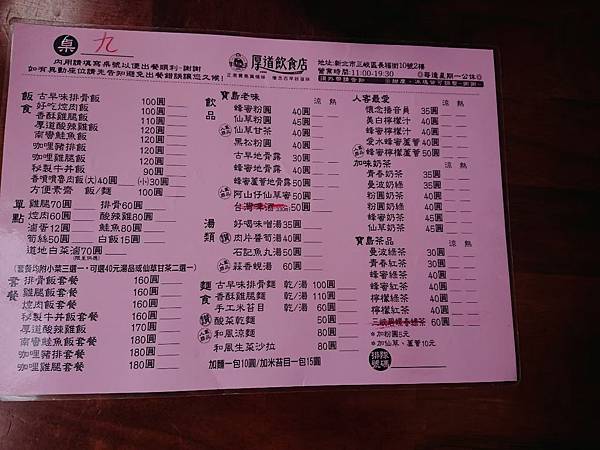 桌 九
內用請填寫桌號以便出餐順利-謝謝
如有異動座位請先告知避免出餐錯誤讓您久候!
厚道飲食店
正港寶島媽媽味 懷念古早好滋味
地址:新北市三峽區長福街10號2樓
營業時間:11:00-19:30 ◎每逢星期一公休◎
飯食
古早味排骨飯 100圓
好吃焢肉飯 100圓
香酥雞腿飯 110圓
厚道酸辣雞飯 120圓
南蠻鮭魚飯 120圓
咖哩豬排飯 110圓
咖哩雞腿飯 120圓
秘製牛丼飯 90圓
香噴噴魯肉飯(大)40圓 (小)30圓
方便素齋 飯/麵 100圓
單點
雞腿70圓 排骨60圓
焢肉60圓 酸辣雞80圓
滷蛋12圓 鮭魚80圓
筍絲50圓 白飯15圓
道地白菜滷70圓
(限量供應)
(套餐均附小菜三選一,可選40元湯品或仙草甘茶二選一)
套餐
排骨飯套餐 160圓
雞腿飯套餐 160圓
焢肉飯套餐 160圓
秘製牛丼飯套餐 160圓
厚道酸辣雞飯 170圓
南蠻鮭魚飯套餐 180圓
咖哩豬排套餐 160圓
咖哩雞腿套餐 180圓
飲品
寶島老味 涼 熱
蜂蜜粉圓 40圓
仙草粉圓 45圓
仙草甘茶 40圓
黑松粉圓 40圓
古早地骨露 30圓
蜂蜜地骨露 40圓
蜂蜜蘆薈地骨露50圓
阿山仔仙草蜜 50圓
台灣啤酒 50圓
湯類
好喝味噌湯35圓
肉片醬筍湯 40圓
石記魚丸湯50圓
蒜香蜆湯 60圓
麵食
古早味排骨麵 乾/湯 100圓
香酥雞腿麵 乾/湯 110圓
手工米苔目 乾/湯 60圓
酸菜乾麵 50圓
和風涼麵 80圓
和風生菜沙拉 80圓
加麵一包10圓/加米苔目一包15圓
人客最愛 涼 熱
懷念播音員 35圓
美白檸檬汁 40圓
蜂蜜檸檬汁 40圓
愛水蜂蜜蘆薈40圓
蜂蜜檸檬蘆薈50圓
加味奶茶 涼 熱
青春奶茶 35圓
曼波奶綠 35圓
粉圓奶茶 40圓
粉圓奶綠 40圓
蜂蜜奶茶 45圓
仙草奶茶 45圓
寶島茶品 涼 熱
曼波綠茶 30圓
青春紅茶 30圓
蜂蜜綠茶 40圓
蜂蜜紅茶 40圓
檸檬綠茶 40圓
檸檬紅茶 40圓
三峽碧螺春綠茶 60圓
*加粉圓5元
*加仙草、蘆薈10元
排隊號碼